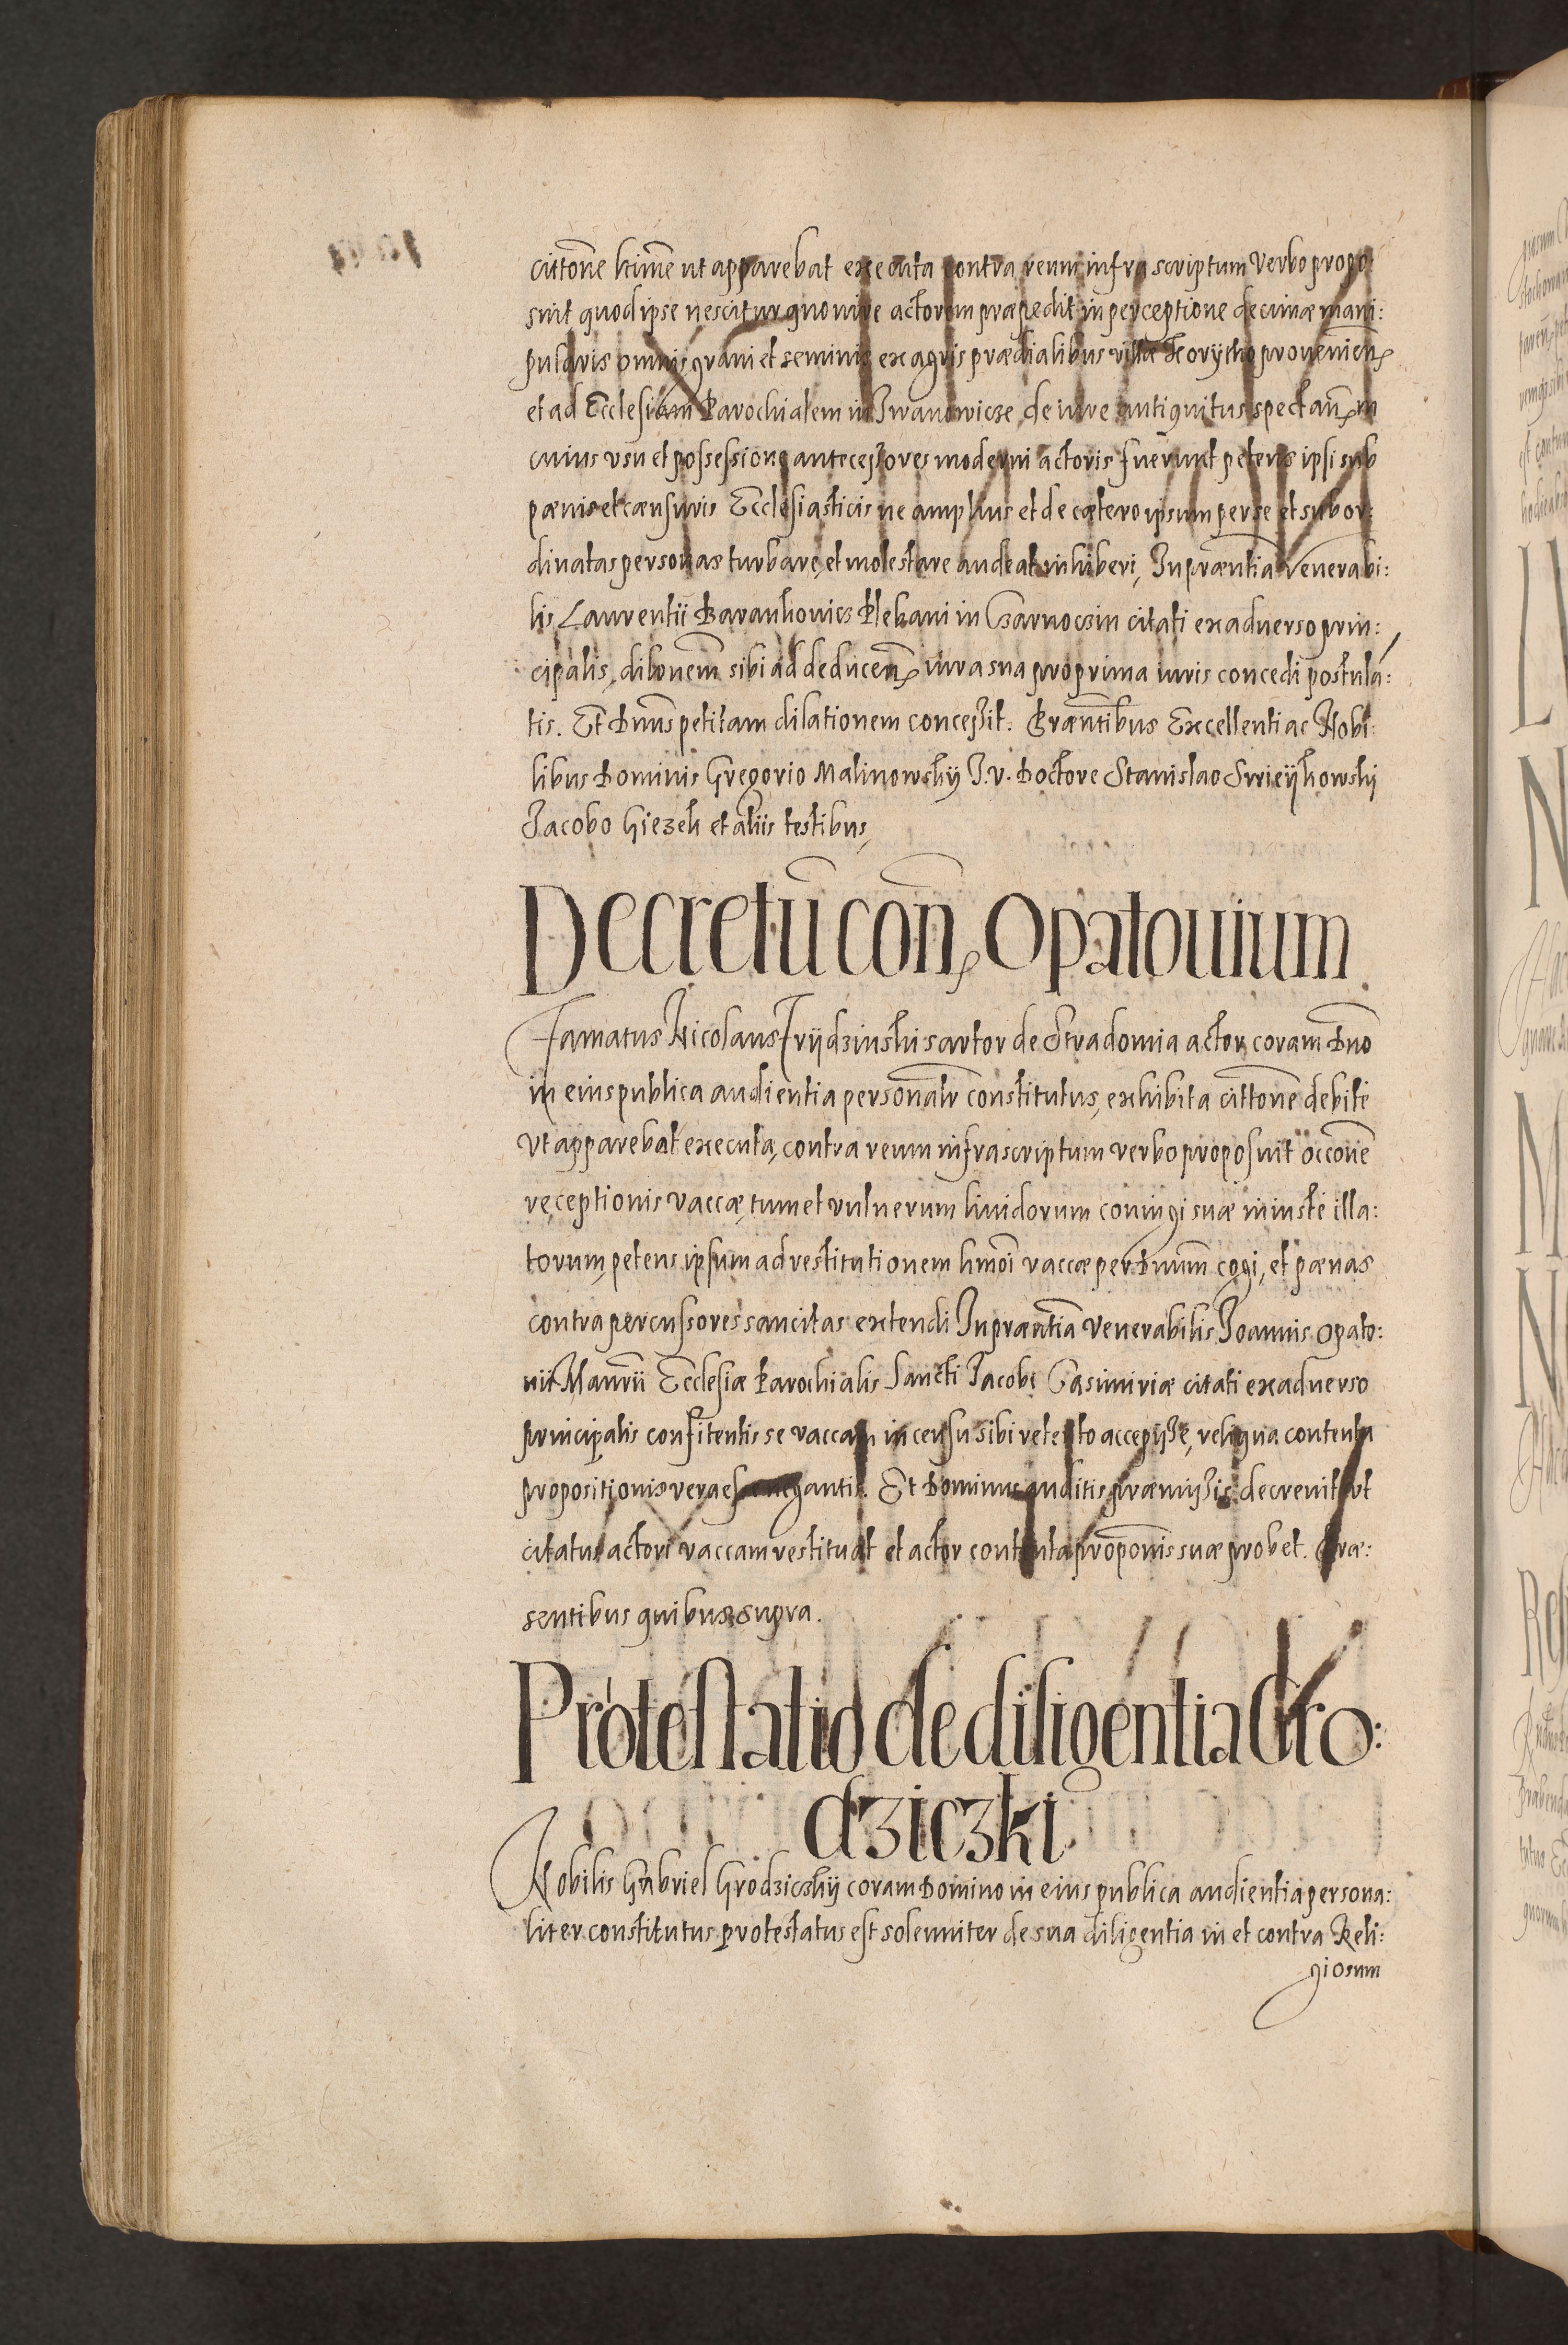 cittone ltime ut apparebat executa contra reum infra scriptum verbo propo
suit quod ipse nescitur quo iure actorem præpedit in perceptione decimæ mani:
pularis omnis grani et seminis ex agris prædialibus villæ provenien
et ad Ecclesiam Parochialem in Iwanowicze de iure antiquitus spectan in
cuius usu et possessione antecessores moderni actoris fuerunt petens ipsi sub
pænis et cænsuris Ecclesiasticis ne amplius et de cætero ipsum per se et subor:
dinatas personas turbare, et molestare audeat inhiberi, In præntia venerabi:
lis Laurentii Baranhovicz Plebani in Czarnoczin citati ex adverso prin:
cipalis, dilonem sibi ad deducen iura sua pro prima iuris concedi postula:
tis. Et Dnus petitam dilationem concessit. Præntibus Excellenti ac Nobi:
libus Dominis Gregorio Malinowskÿ I.v. Doctore Stanislao
Jacobo Giezek et aliis testibus,
Decretū con Opatouium
Famatus Nicolaus Frÿdzinski sartor de Stradomia actor, coram Dno
in eius publica audientia personalr constitutus, exhibita cittone debite
ut apparebat executa, contra reum infrascriptum verbo proposuit occone
receptionis vaccæ, tum et vulnerum lividorum coniugi suæ iniuste illa:
torum, petens ipsum ad restitutionem hmoi vaccæ per Dnum cogi, et pænas
contra percussores sancitas extendi In præntia venerabilis Joannis Opato:
vii Mansrii Ecclesiæ Parochialis Sancti Jacobi Casimiriæ citati ex adverso
principalis confitentis se vaccam in censu sibi retento accepisse, reliqua contenta
propositionis vera esse negantis. Et Dominus auditis præmissis decrevit ut
citatus actori vaccam restituat et actor contenta proponis suæ probet. Præ:
sentibus quibus supra.
Protestatio de diligentia Gro:
dziczki
Nobilis Gabriel Grodziczkÿ coram Domino in eius publica audientia persona:
liter constitutus protestatus est solenniter de sua diligentia in et contra Reli:
giosum